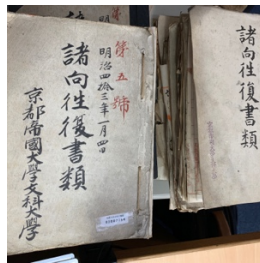 第五號
明治四拾三年一月四日
諸向徃復書類
京都帝國大學文科大學
諸向徃復書類